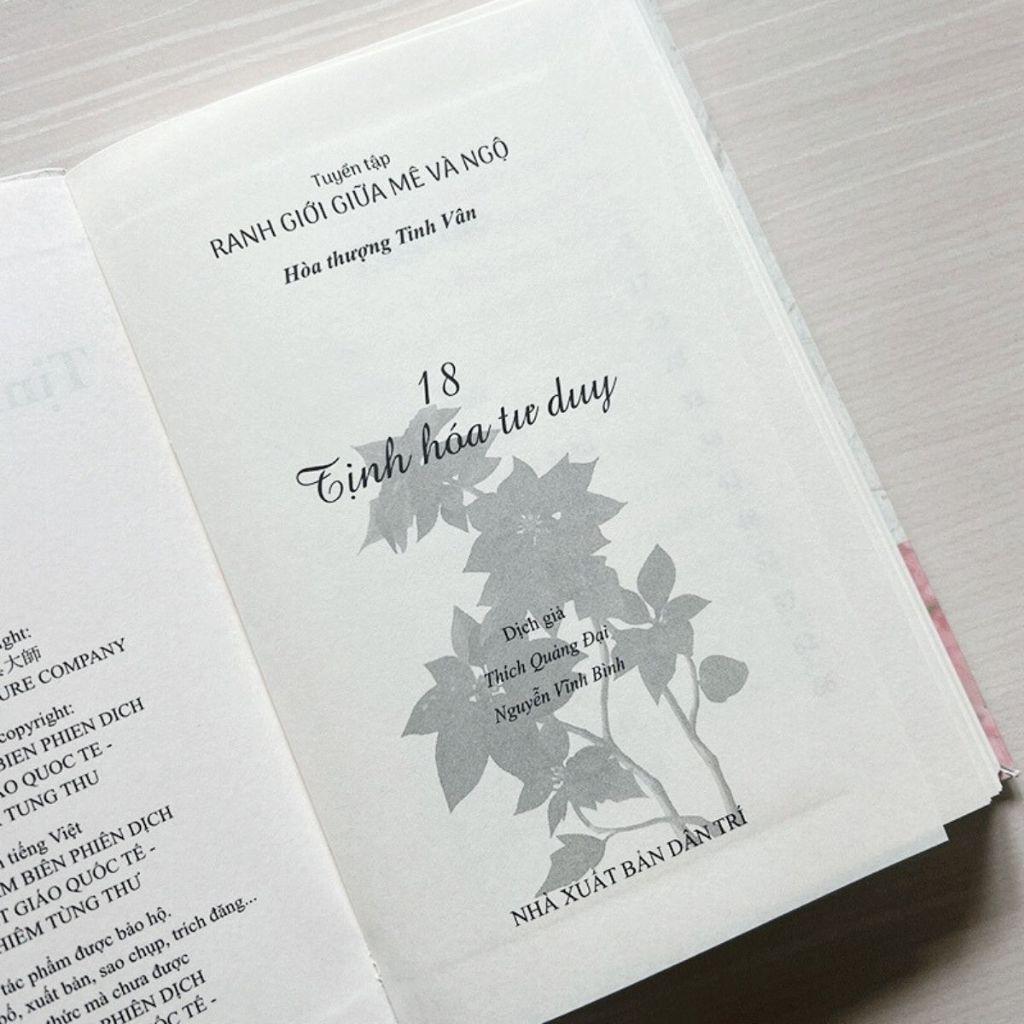 Tuyển tập
RANH GIỚI GIỮA MÊ VÀ NGỘ
Hòa thượng Tinh Vân
18
Tịnh hóa tư duy
Dịch giả
Thích Quảng Đại
Nguyễn Vĩnh Bình
NHÀ XUẤT BẢN DÂN TRÍ
大師
COMPANY
copyright:
PHIEN DICH
QUOC TE -
TUNG THU
tiếng Việt
BIÊN PHIÊN DỊCH
GIÁO QUỐC TẾ -
TÙNG THƯ
tác phẩm được bảo hộ.
xuất bản, sao chụp, trích đăng...
thức mà chưa được
PHIÊN DỊCH
QUỐC TẾ -